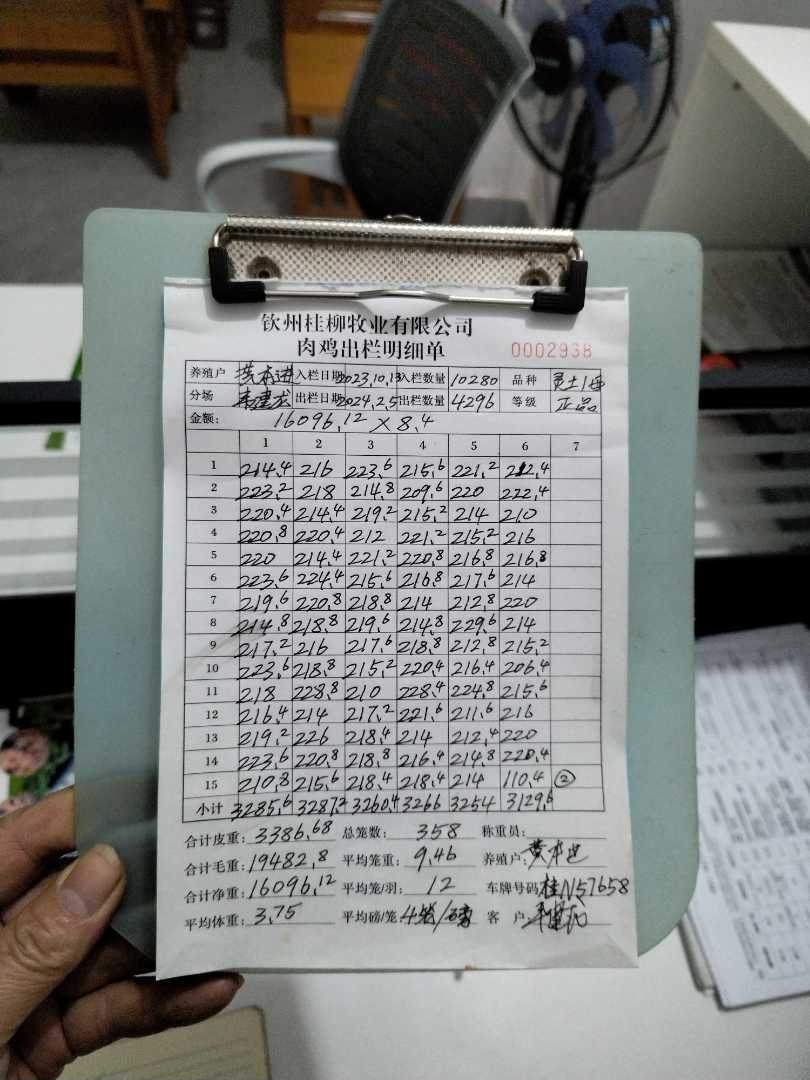 钦州桂柳牧业有限公司
肉鸡出栏明细单 0002938
养殖户 入栏日期 2023.10.13 入栏数量 10280 品种 灵土1母
分场 出栏日期 2024.2.5 出栏数量 4296 等级 正品
金额: 16096.12 × 8.4
1 2 3 4 5 6 7
1 214.4 216 223.6 215.6 221.2 212.4
2 223.2 218 214.8 209.6 220 222.4
3 220.4 214.4 219.2 215.2 214 210
4 220.8 220.4 212 221.2 215.2 216
5 220 214.4 221.2 220.8 216.8 216.8
6 223.6 224.4 215.6 216.8 217.6 214
7 219.6 220.8 218.8 214 212.8 220
8 214.8 218.8 219.6 214.8 229.6 214
9 217.2 216 217.6 218.8 212.8 215.2
10 223.6 218.8 215.2 220.4 216.4 206.4
11 218 228.8 210 228.4 224.8 215.6
12 216.4 214 217.2 221.6 211.6 216
13 219.2 226 218.4 214 212.4 220
14 223.6 220.8 218.8 216.4 214.8 220.4
15 210.8 215.6 218.4 218.4 214 110.4 ②
小计 3285.6 3287.2 3260.4 3266 3254 3129.6
合计皮重: 3386.68 总笼数: 358 称重员:
合计毛重: 19482.8 平均笼重: 9.46 养殖户: 黄本进
合计净重: 16096.12 平均笼/羽: 12 车牌号码 桂N57658
平均体重: 3.75 平均磅/笼 4笼/磅 客 户: